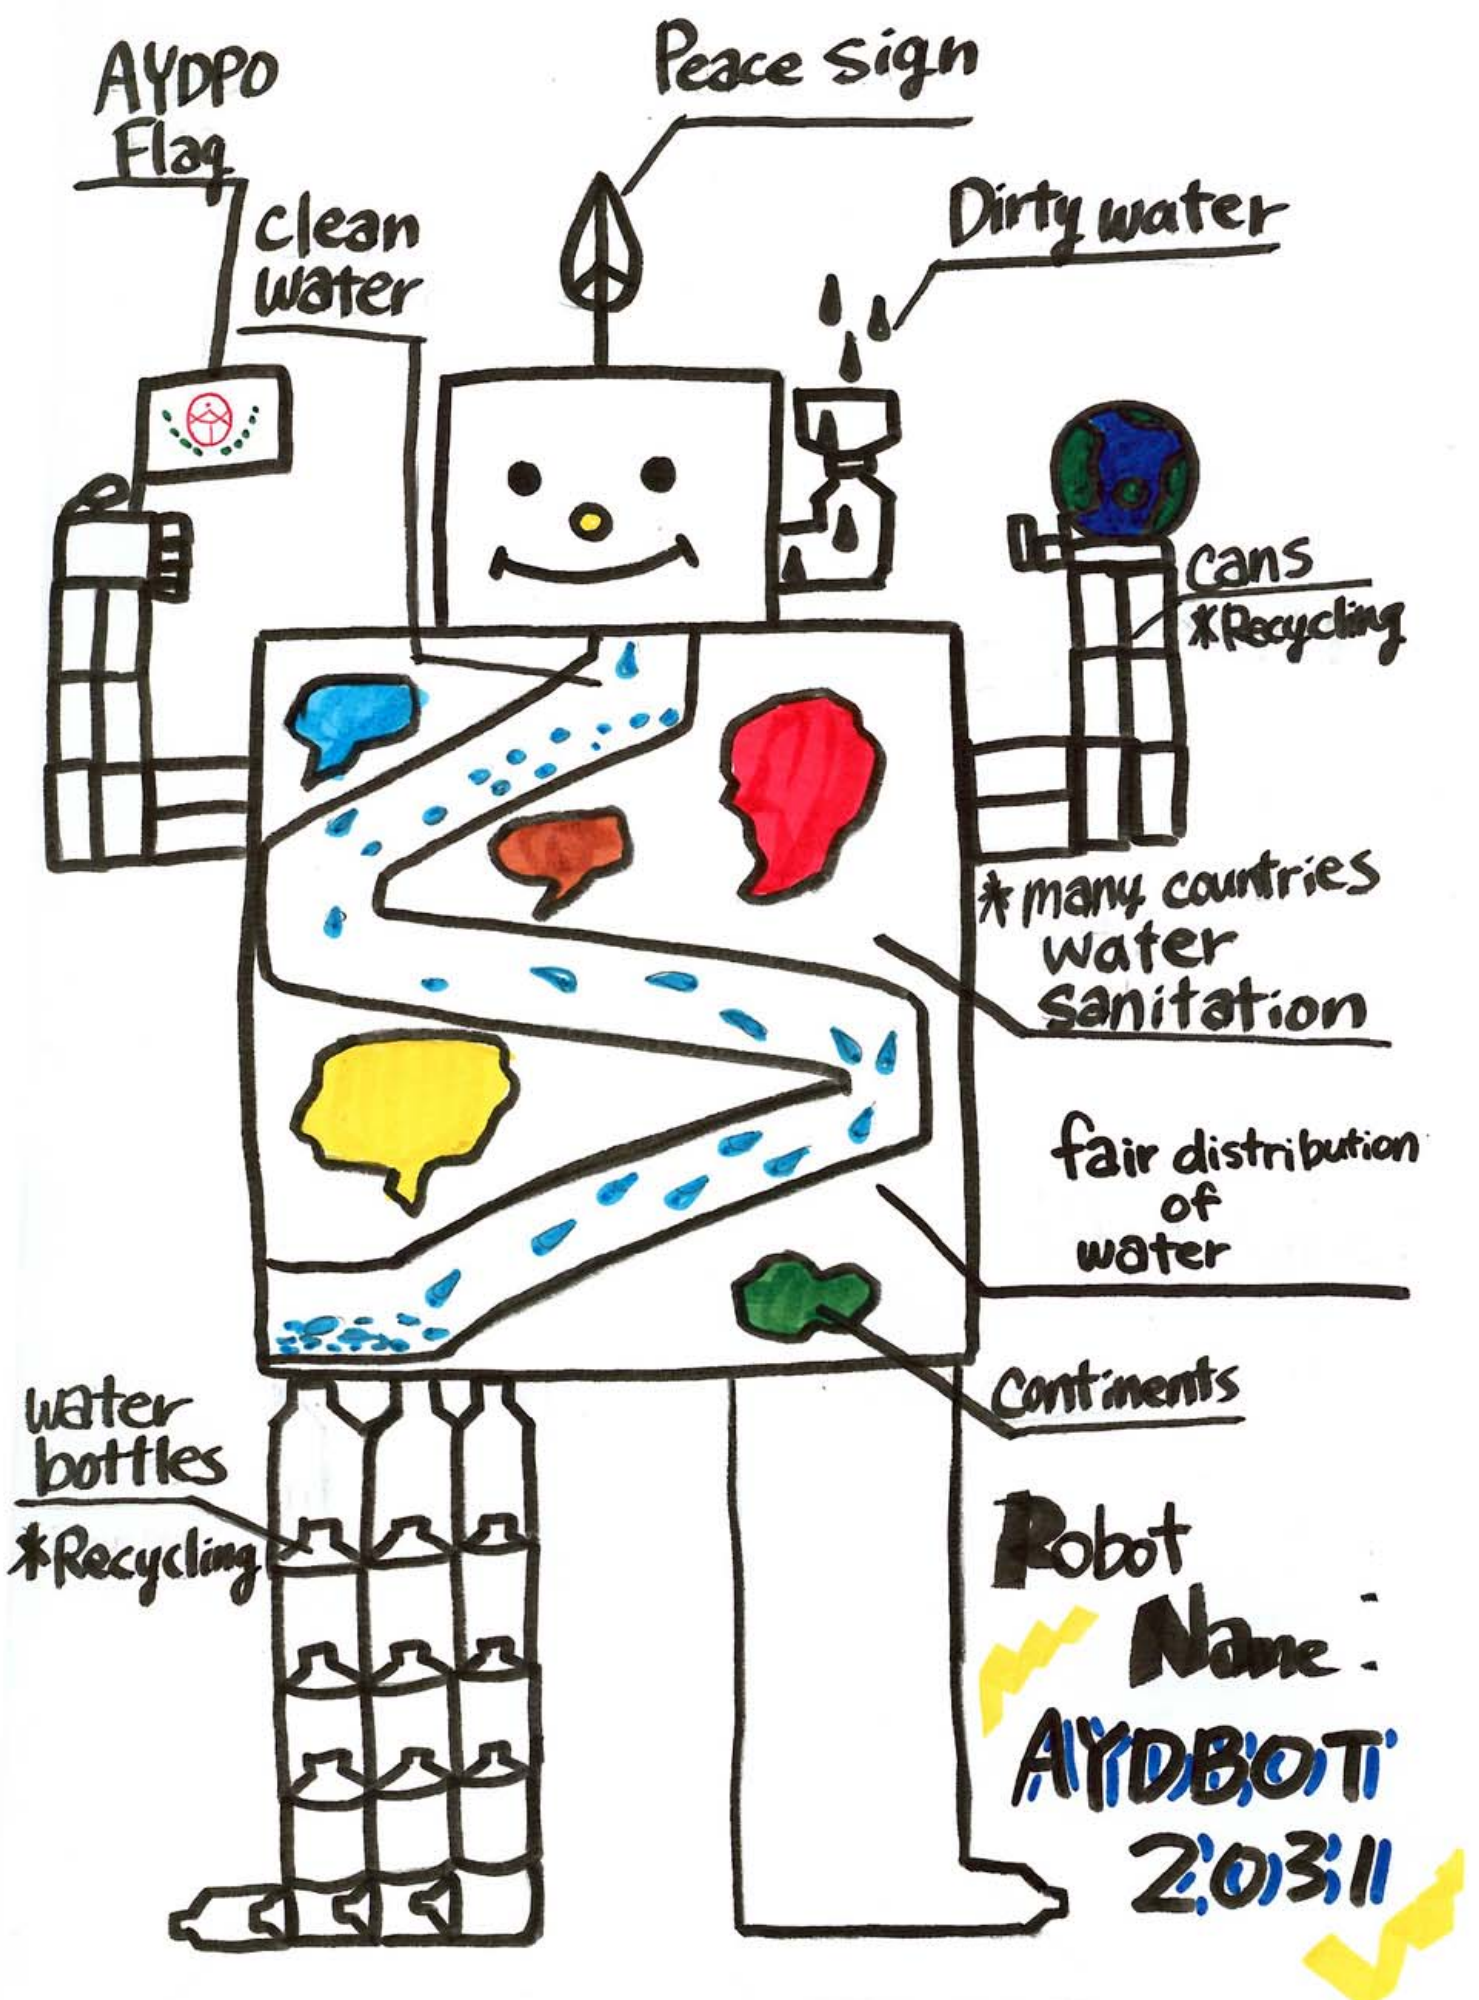 AYDPO
Flag
Peace sign
clean
water
Dirty water
cans
*Recycling
*many countries
water
sanitation
fair distribution
of
water
continents
water
bottles
*Recycling
Robot
Name:
AYDBOT
2031